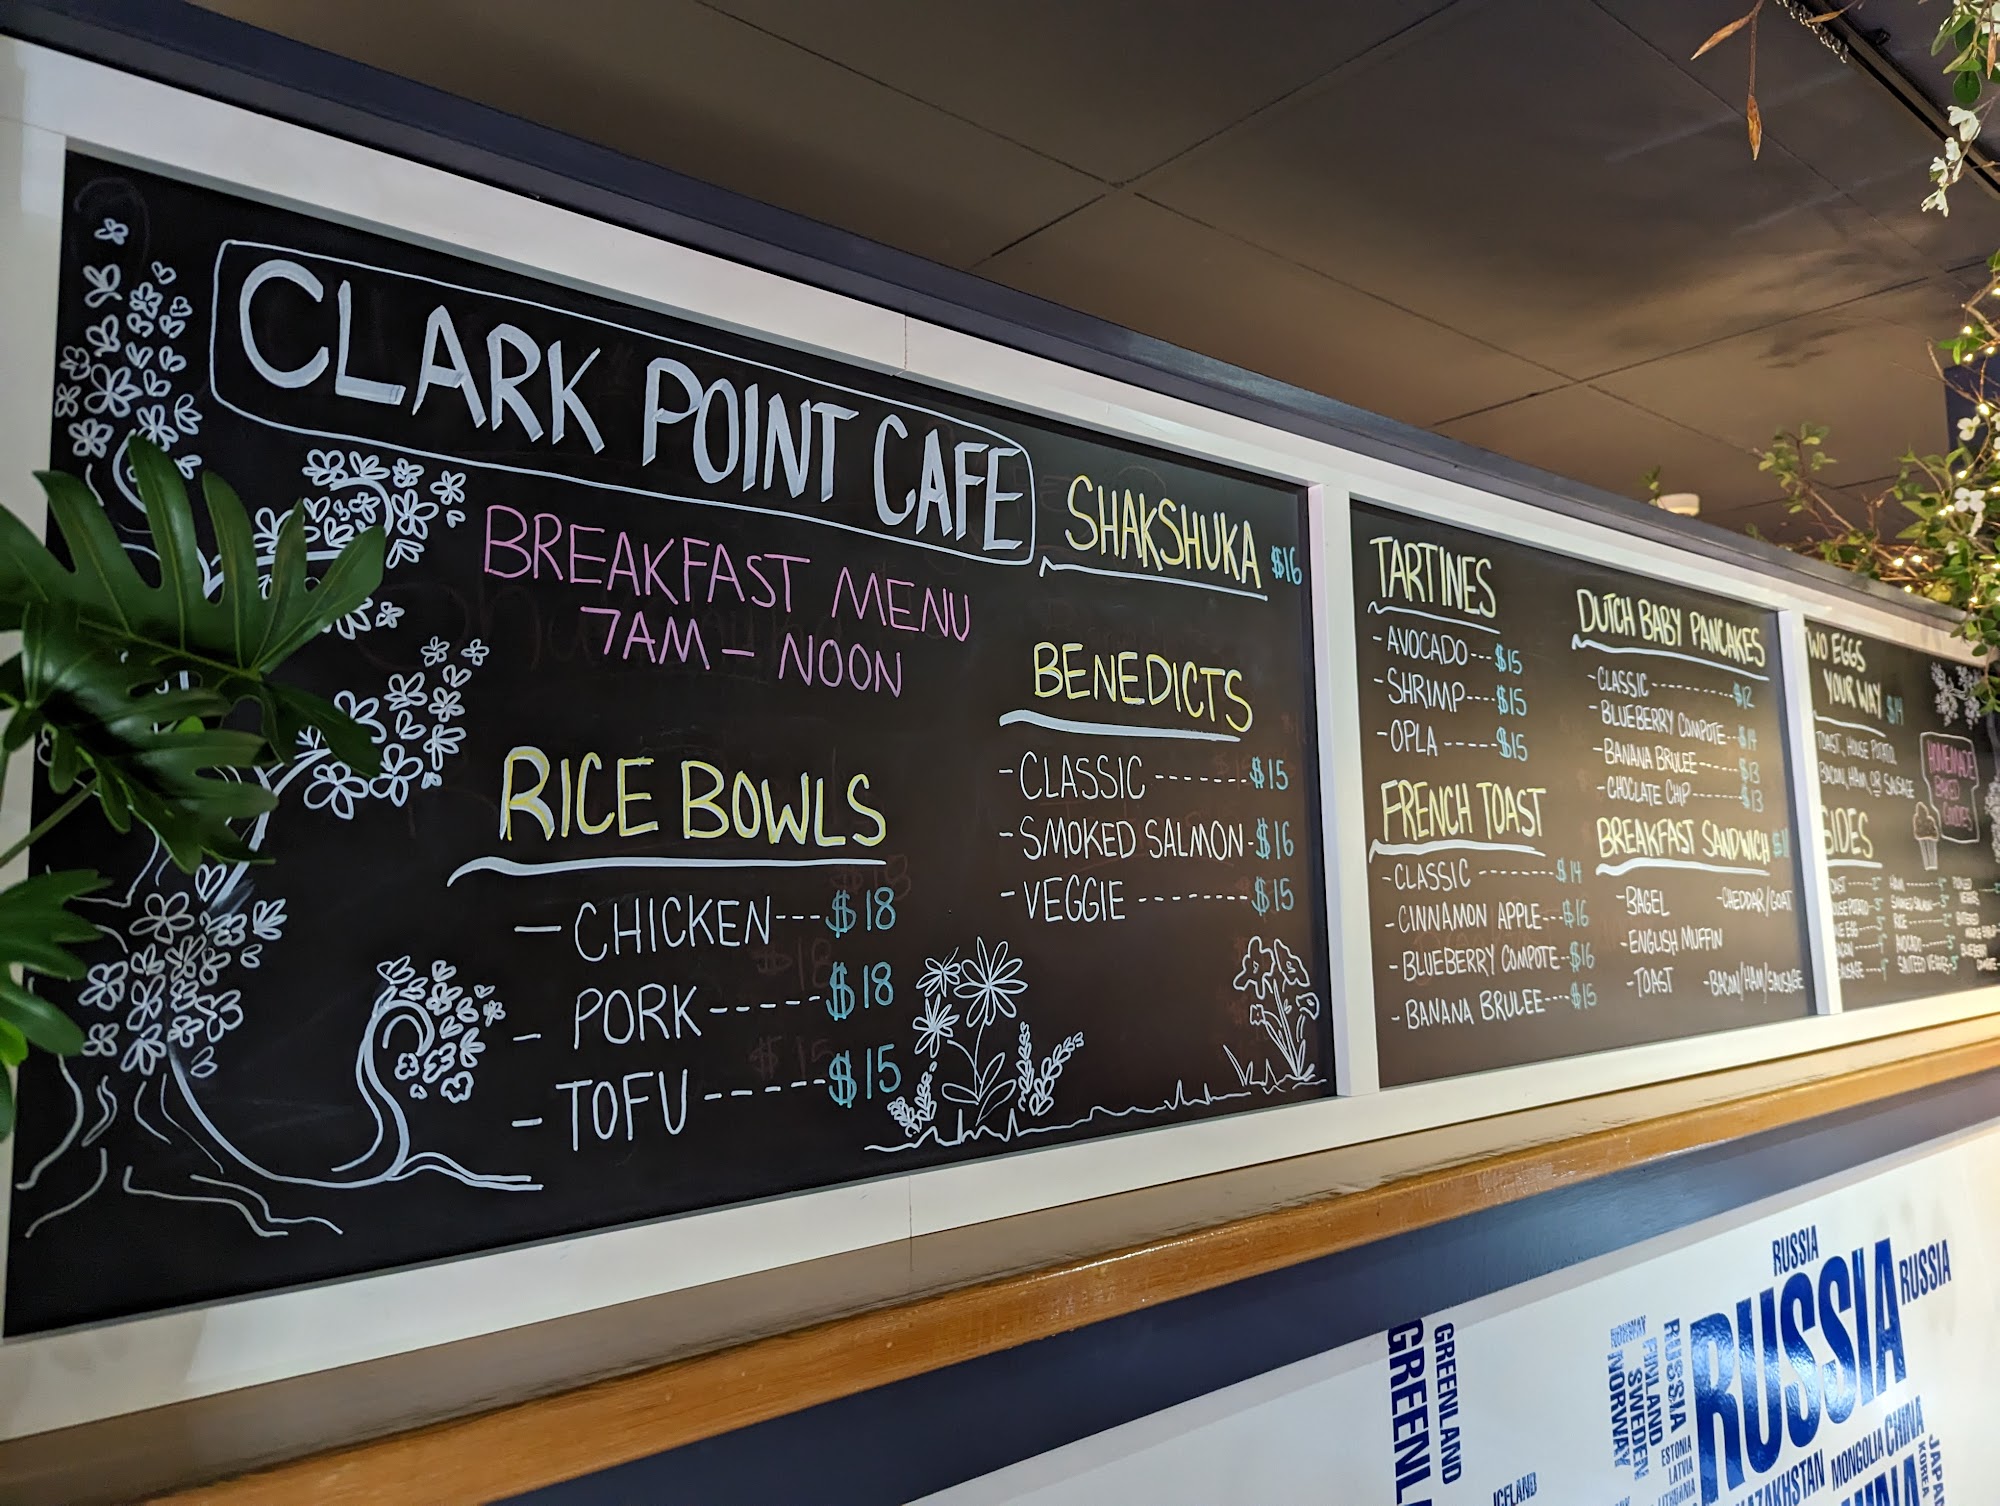 CLARK POINT CAFE
BREAKFAST MENU
7AM - NOON
RICE BOWLS
- CHICKEN---$18
- PORK-----$18
- TOFU-----$15
SHAKSHUKA $16
BENEDICTS
-CLASSIC-------$15
-SMOKED SALMON-$16
-VEGGIE--------$15
TARTINES
-AVOCADO---$15
-SHRIMP----$15
-OPLA-----$15
FRENCH TOAST
-CLASSIC--------$14
-CINNAMON APPLE--$16
-BLUEBERRY COMPOTE--$16
-BANANA BRULEE----$15
DUTCH BABY PANCAKES
-CLASSIC---------$12
-BLUEBERRY COMPOTE--$14
-BANANA BRULEE----$13
-CHOCLATE CHIP----$13
BREAKFAST SANDWICH
-BAGEL -CHEDDAR/GOAT
-ENGLISH MUFFIN
-TOAST -BACON/HAM/SAUSAGE
WO EGGS
YOUR WAY $14
TOAST, HOUSE POTATO,
BACON, HAM, OR SAUSAGE
HOMEMADE
BAKED
GOODIES
SIDES
HAM
SMOKED SALMON
RICE
AVOCADO
SAUTEED VEGGIES
RUSSIA
RUSSIA
RUSSIA
GREENLAND
GREENL
NORWAY
FINLAND
SWEDEN
NORWAY
RUSSIA
ESTONIA
LATVIA
LITHUANIA
ICELAND
KAZAKHSTAN
MONGOLIA
CHINA
KOREA
JAPA